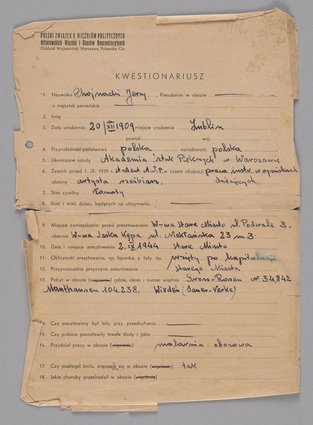 POLSKI ZWIĄZEK B. WIĘŹNIÓW POLITYCZNYCH
Hitlerowskich Więzień i Obozów Koncentracyjnych
Oddział Wojewódzki Warszawa,
KWESTIONARIUSZ
1. Nazwisko Chojnacki Jerzy, Pseudonim w obozie
u mężatek panieńskie
2. Imię
3. Data urodzenia 20/XII 1909 miejsce urodzenia Lublin
powiat woj
4. Przynależność państwowa polska narodowość polska
5. Ukończone szkoły Akademia Sztuk Pięknych w Warszawie
6. Zawód: przed 1. IX. 1939 r. student A.S.P. w czasie okupacji praca instr. w ogniskach
obecny artysta rzeźbiarz. dziecięcych
7. Stan cywilny żonaty
8. Ilość i wiek dzieci, będących na utrzymaniu
9. Miejsce zamieszkania: przed aresztowaniem W-wa Stare Miasto ul. Podwale 3.
obecne W-wa Saska Kępa ul. 23 m 3
10. Data i miejsce aresztowania 2.IX 1944 Stare Miasto
11. Okliczności aresztowania, np. łapanka, z listy itp. wzięty po kapitulacji
12. Przypuszczalna przyczyna aresztowania Starego Miasta
13. Pobyt w obozie (więzieniu) gdzie, okres i numer więźnia Gross-Rosen nr 34.842
Mauthausen 104.238. Wiedeń
14. Czy aresztowany był bity przy przesłuchaniu
15. Czy pobicie pozostawiły trwałe ślady i jakie
16. Przydział pracy w obozie (więzieniu) malarnia obozowa
17. Czy podlegał biciu, znęcaniu się w obozie (więzieniu) tak
18. Jakie choroby przechodził w obozie (więzieniu)